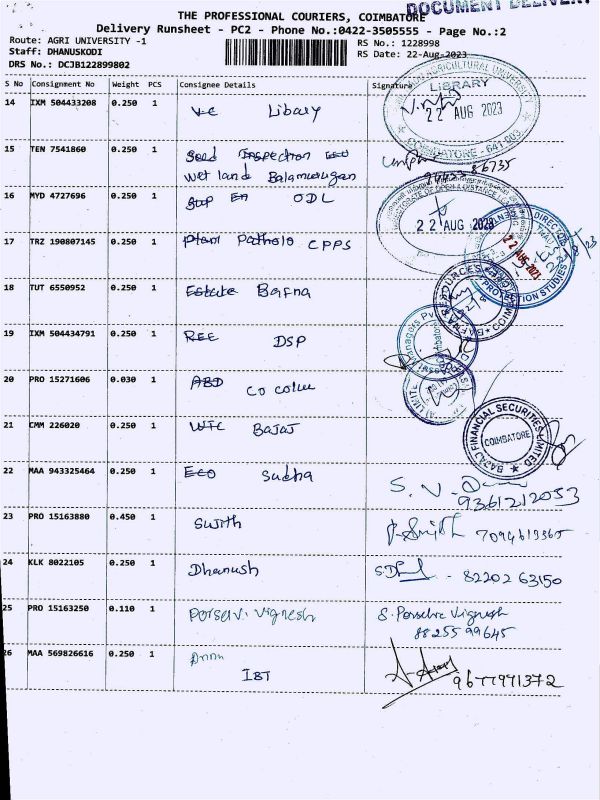 DOCUMENT DELIVERY
THE PROFESSIONAL COURIERS, COIMBATORE
Delivery Runsheet - PC2 - Phone No.:0422-3505555 - Page No.:2
Route: AGRI UNIVERSITY -1
Staff: DHANUSKODI
DRS No.: DCJB122899802
RS No.: 1228998
RS Date: 22-Aug-2023
S No Consignment No Weight PCS Consignee Details Signature
14 IXM 504433208 0.250 1 Libary
AGRICULTURAL UNIVERSITY
LIBRARY
22 AUG 2023
COIMBATORE - 641 003
15 TEN 7541860 0.250 1 Seed Inspection
Wet land Balamurugan
86735
16 MYD 4727696 0.250 1 ODL
DIRECTORATE OF OPEN & DISTANCE LEARNING
22 AUG 2023
17 TRZ 190807145 0.250 1 Plant Patholo CPPS
22 AUG 2023
PROTECTION STUDIES
18 TUT 6550952 0.250 1 Estate Bafna
19 IXM 504434791 0.250 1 REE DSP
20 PRO 15271606 0.030 1 ABD
21 CMM 226020 0.250 1 WTC Bajaj
BAJAJ FINANCIAL SECURITIES LIMITED
COIMBATORE
22 MAA 943325464 0.250 1 ECO Sudha
9361212053
23 PRO 15163880 0.450 1 Sujith
7094613365
24 KLK 8022105 0.250 1 Dhanush
82202 63150
25 PRO 15163250 0.110 1 Porselvi Vignesh
88255 99645
26 MAA 569826616 0.250 1
IBT
9677971372